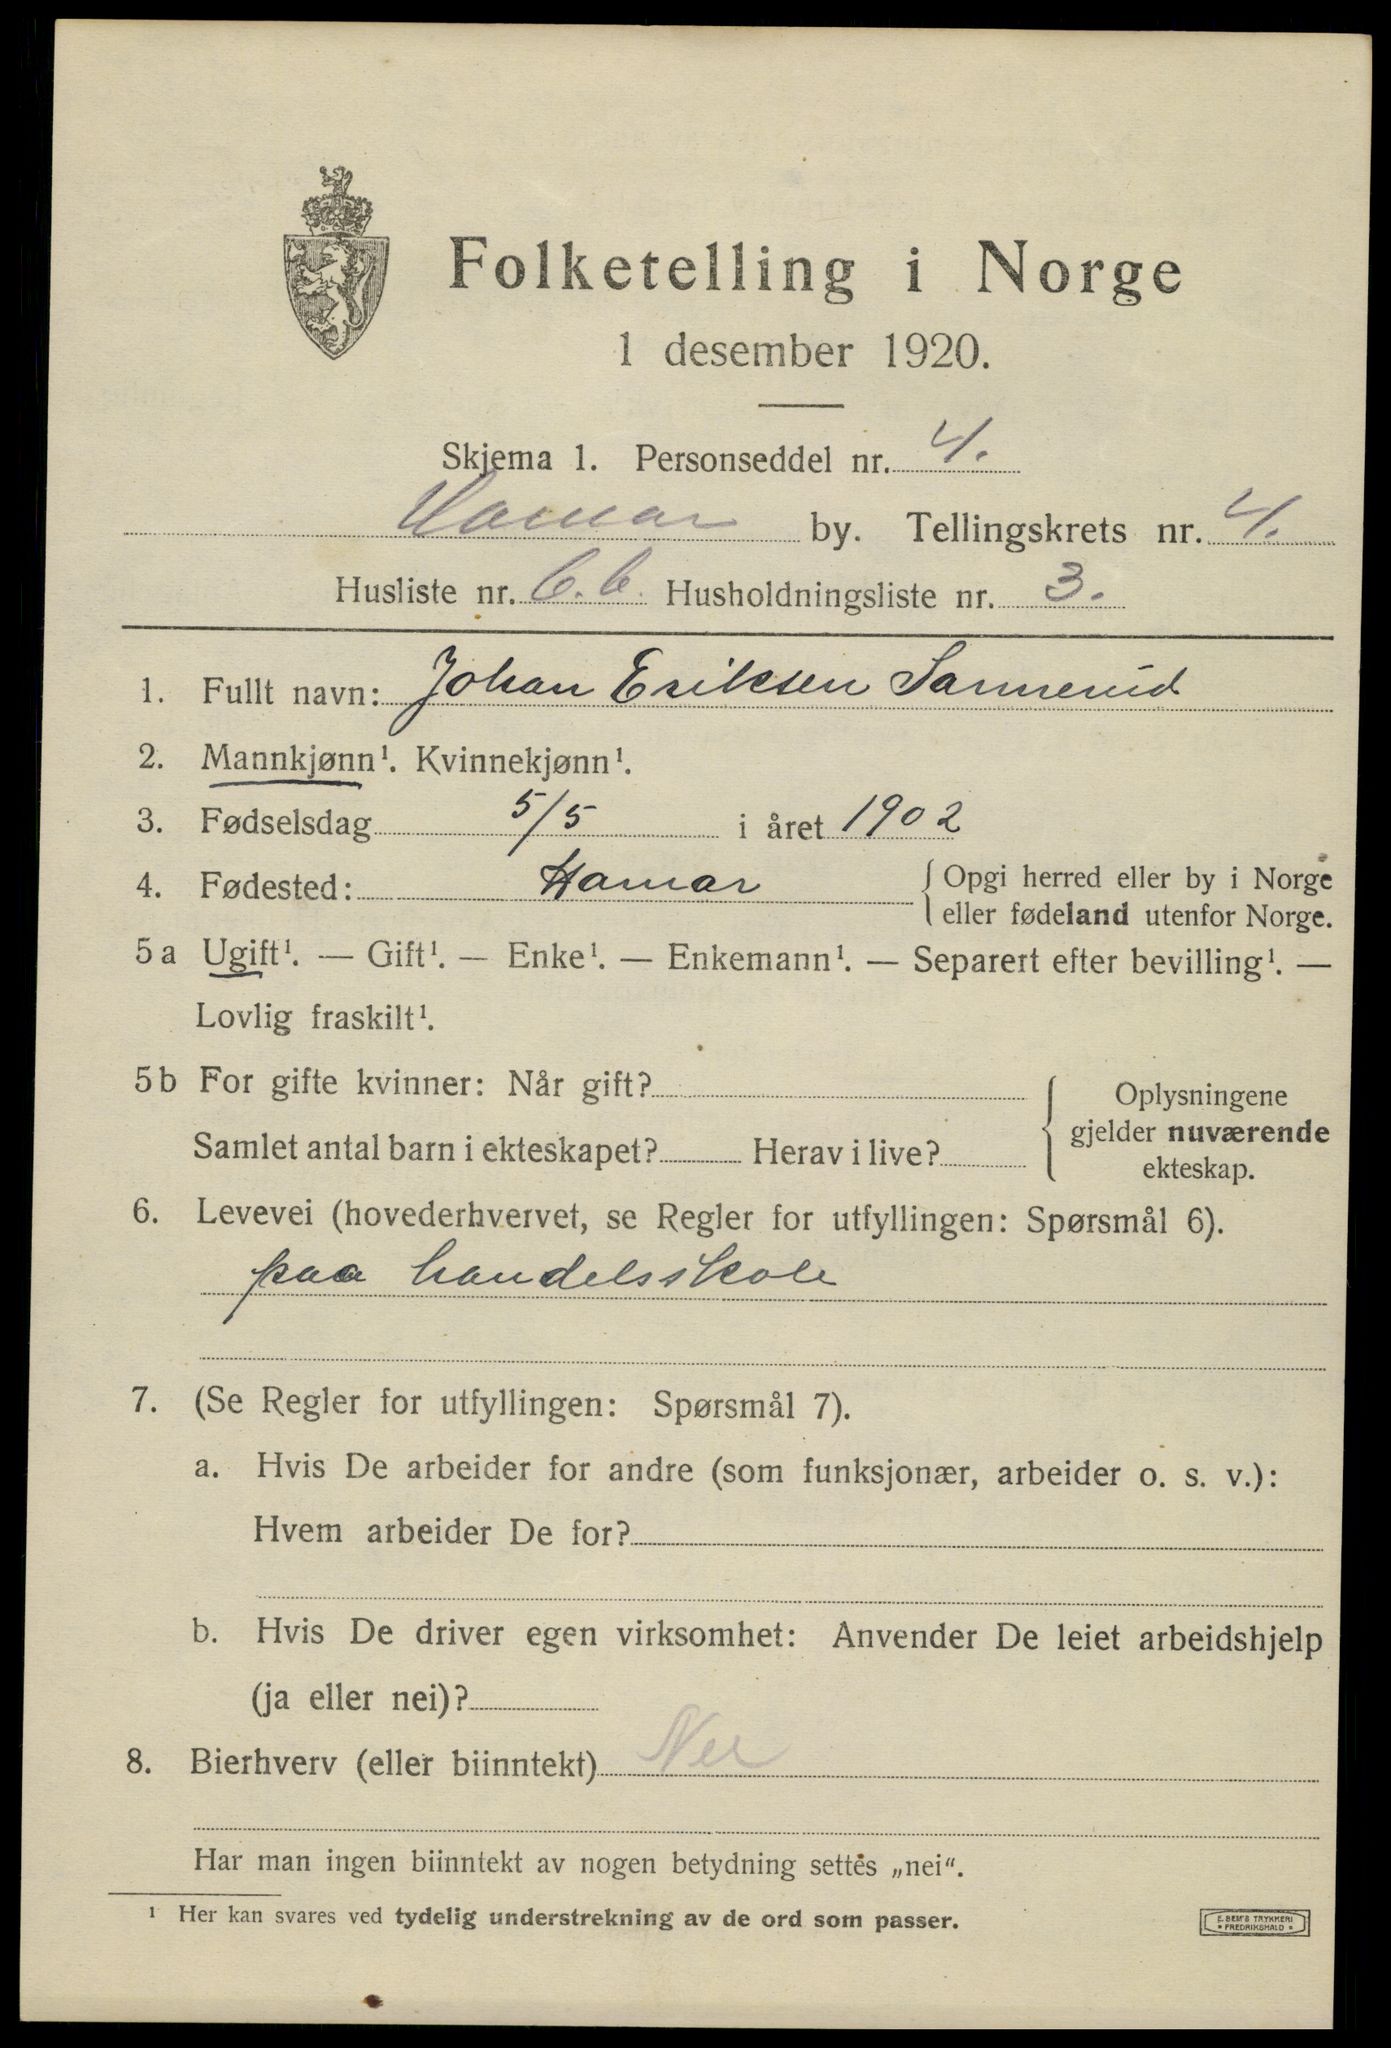 Folketelling i Norge
1 desember 1920.
Skjema 1. Personseddel nr. 4.
Hamar by. Tellingskrets nr. 4.
Husliste nr. 66. Husholdningsliste nr. 3.
1. Fullt navn: Johan Eriksen Sannerud
2. Mannkjønn¹. Kvinnekjønn¹.
3. Fødselsdag 5/5 i året 1902
4. Fødested: Hamar { Opgi herred eller by i Norge
eller fødeland utenfor Norge.
5 a Ugift¹. — Gift¹. — Enke¹. — Enkemann¹. — Separert efter bevilling¹. —
Lovlig fraskilt¹.
5 b For gifte kvinner: Når gift? { Oplysningene
gjelder nuværende
Samlet antal barn i ekteskapet? Herav i live? ekteskap.
6. Levevei (hovederhvervet, se Regler for utfyllingen: Spørsmål 6).
paa handelsskole
7. (Se Regler for utfyllingen: Spørsmål 7).
a. Hvis De arbeider for andre (som funksjonær, arbeider o. s. v.):
Hvem arbeider De for?
b. Hvis De driver egen virksomhet: Anvender De leiet arbeidshjelp
(ja eller nei)?
8. Bierhverv (eller biinntekt) Nei
Har man ingen biinntekt av nogen betydning settes „nei“.
¹ Her kan svares ved tydelig understrekning av de ord som passer.
E. SEM'S TRYKKERI
* FREDRIKSHALD *